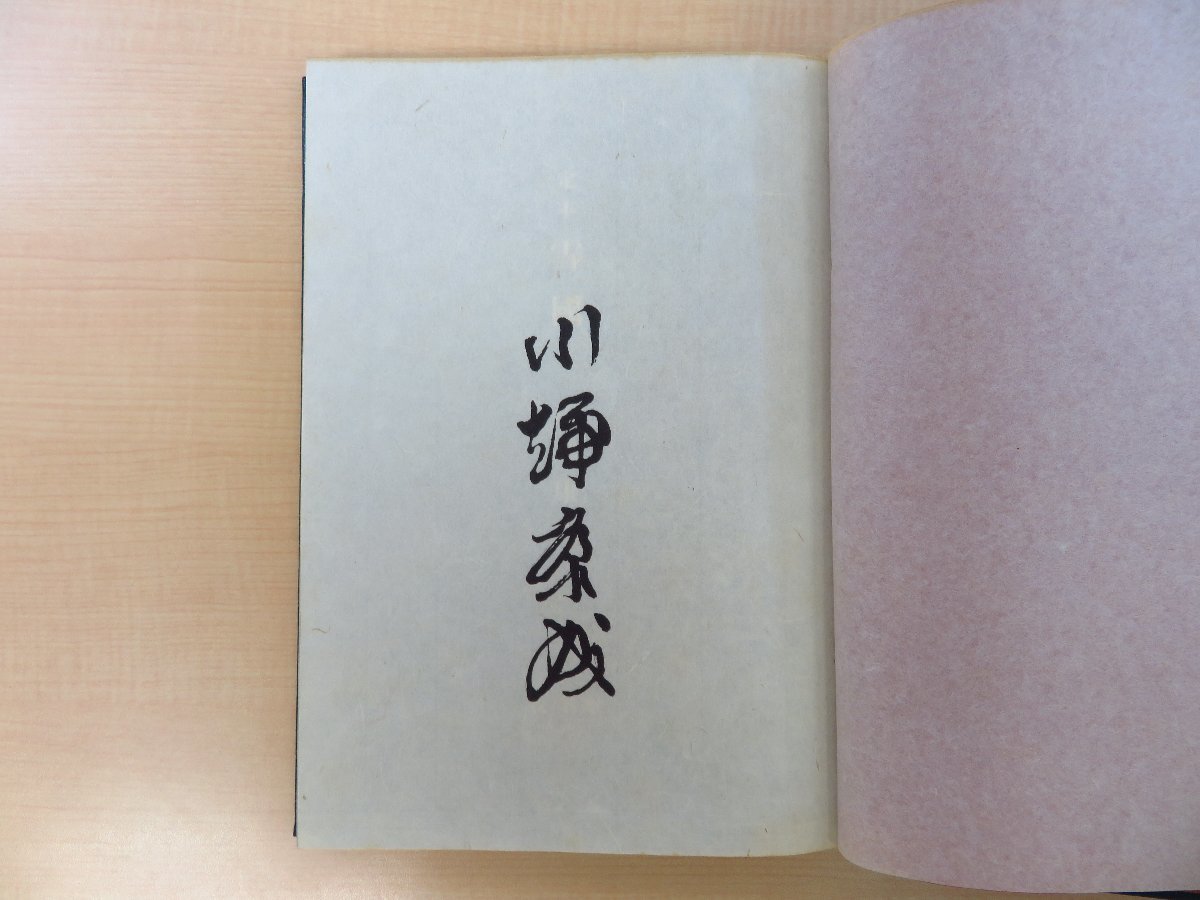 川端康成